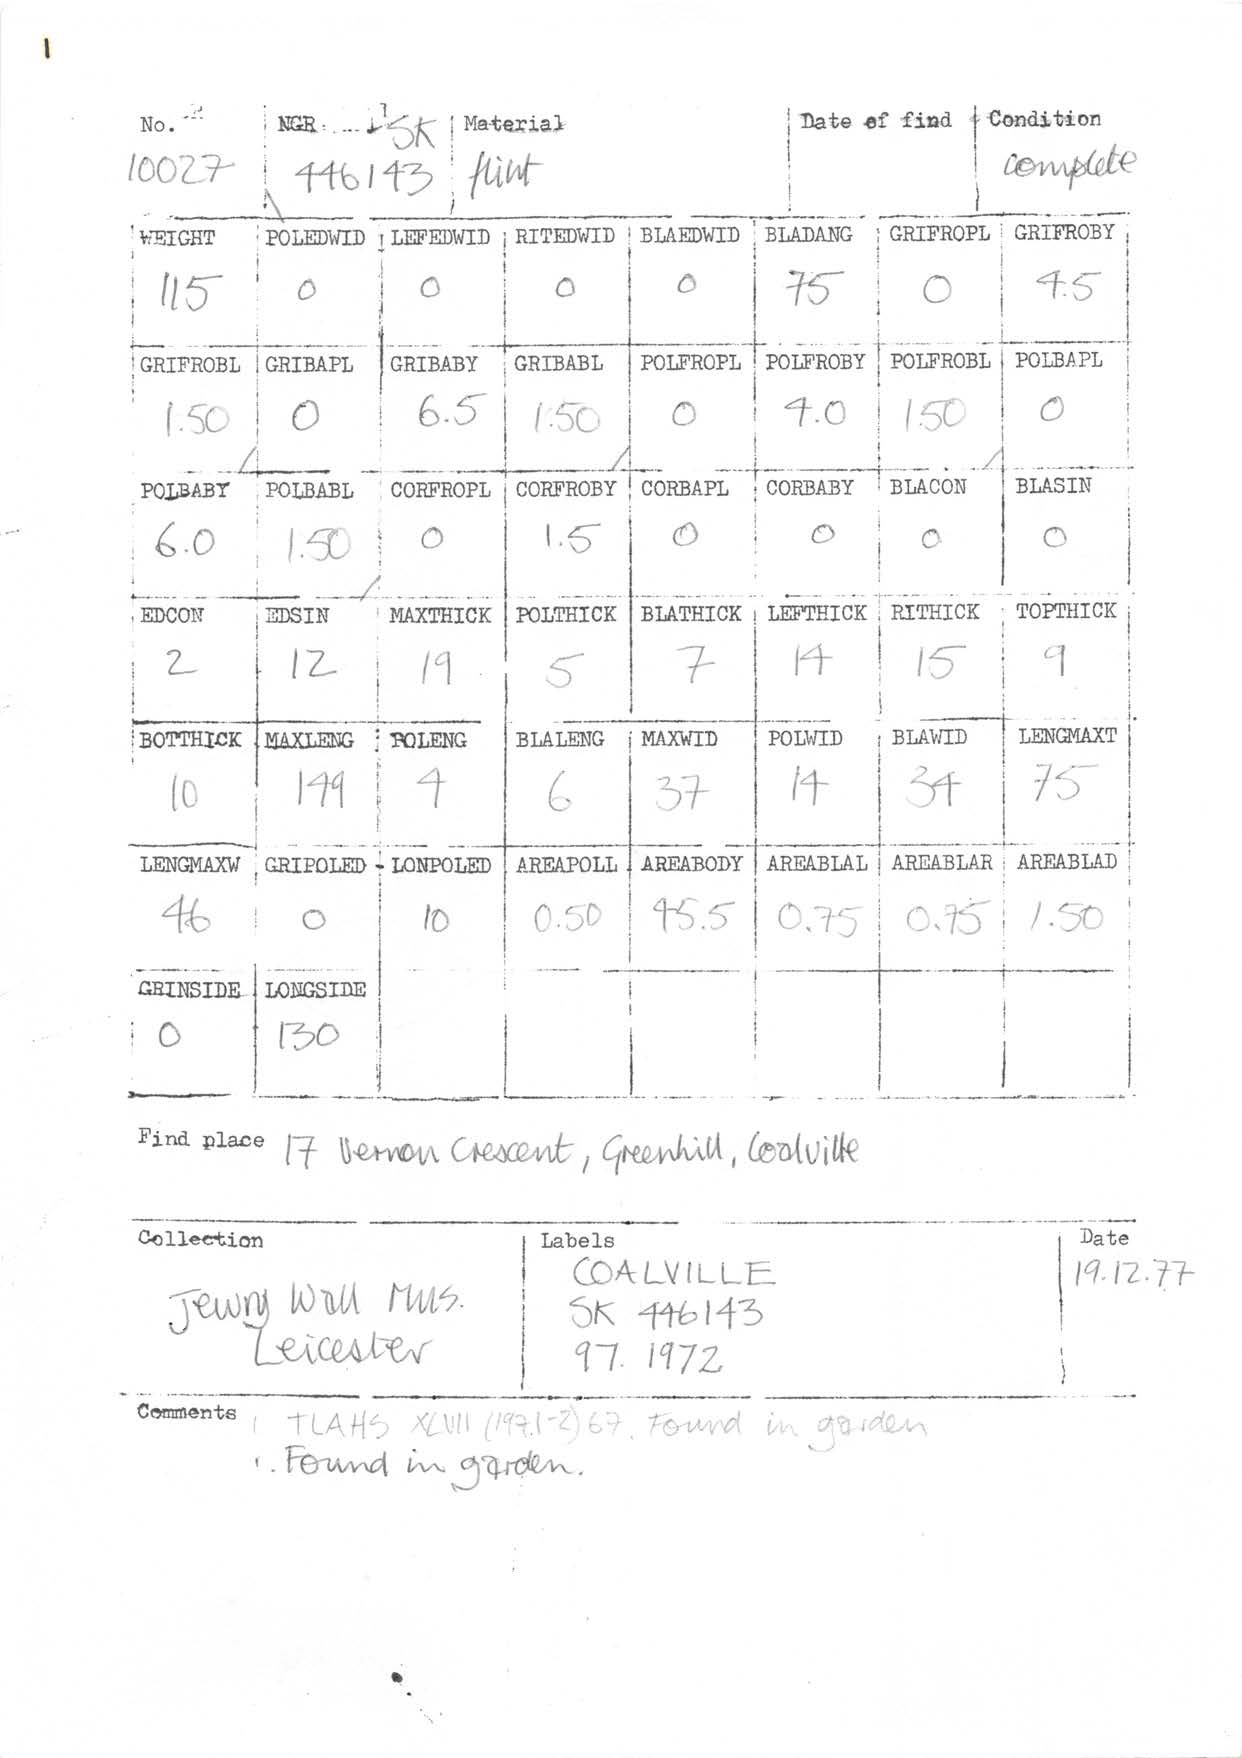 1
No. NGR SK Material Date of find Condition
10027 446143 flint complete
WEIGHT POLEDWID LEFEDWID RITEDWID BLAEDWID BLADANG GRIFROPL GRIFROBY
115 0 0 0 0 75 0 4.5
GRIFROBL GRIBAPL GRIBABY GRIBABL POLFROPL POLFROBY POLFROBL POLBAPL
1.50 0 6.5 1.50 0 4.0 1.50 0
POLBABY POLBABL CORFROPL CORFROBY CORBAPL CORBABY BLACON BLASIN
6.0 1.50 0 1.5 0 0 0 0
EDCON EDSIN MAXTHICK POLTHICK BLATHICK LEFTHICK RITHICK TOPTHICK
2 12 19 5 7 14 15 9
BOTTHICK MAXLENG POLENG BLALENG MAXWID POLWID BLAWID LENGMAXT
10 149 4 6 37 14 34 75
LENGMAXW GRIPOLED LONPOLED AREAPOLL AREABODY AREABLAL AREABLAR AREABLAD
46 0 10 0.50 45.5 0.75 0.75 1.50
GRINSIDE LONGSIDE
0 130
Find place 17 Vernon Crescent, Greenhill, Coalville
Collection Labels Date
COALVILLE 19.12.77
Jewry Wall Mus. SK 446143
Leicester 97. 1972
Comments TLAHS XLVII (1971-2) 67. Found in garden
. Found in garden.